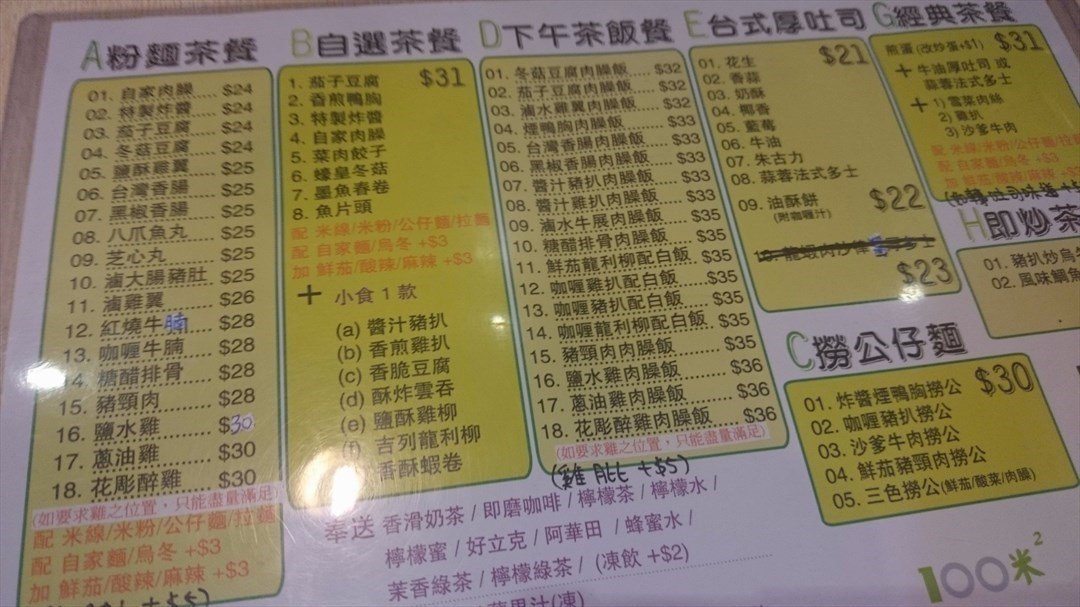 A粉麵茶餐
01. 自家肉臊 $24
02. 特製炸醬 $24
03. 茄子豆腐 $24
04. 冬菇豆腐 $24
05. 鹽酥雞翼 $25
06. 台灣香腸 $25
07. 黑椒香腸 $25
08. 八爪魚丸 $25
09. 芝心丸 $25
10. 滷大腸豬肚 $25
11. 滷雞翼 $26
12. 紅燒牛腩 $28
13. 咖喱牛腩 $28
14. 糖醋排骨 $28
15. 豬頸肉 $28
16. 鹽水雞 $30
17. 蔥油雞 $30
18. 花彫醉雞 $30
(如要求雞之位置，只能盡量滿足)
配 米線/米粉/公仔麵/拉麵
配 自家麵/烏冬 +$3
加 鮮茄/酸辣/麻辣 +$3
B自選茶餐
$31
1. 茄子豆腐
2. 香煎鴨胸
3. 特製炸醬
4. 自家肉臊
5. 菜肉餃子
6. 蠔皇冬菇
7. 墨魚春卷
8. 魚片頭
配 米線/米粉/公仔麵/拉麵
配 自家麵/烏冬 +$3
加 鮮茄/酸辣/麻辣 +$3
+ 小食1款
(a) 醬汁豬扒
(b) 香煎雞扒
(c) 香脆豆腐
(d) 酥炸雲吞
(e) 鹽酥雞柳
(f) 吉列龍利柳
香酥蝦卷
D下午茶飯餐
01. 冬菇豆腐肉臊飯 $32
02. 茄子豆腐肉臊飯 $32
03. 滷水雞翼肉臊飯 $32
04. 煙鴨胸肉臊飯 $33
05. 台灣香腸肉臊飯 $33
06. 黑椒香腸肉臊飯 $33
07. 醬汁豬扒肉臊飯 $33
08. 醬汁雞扒肉臊飯 $33
09. 滷水牛展肉臊飯 $35
10. 糖醋排骨肉臊飯 $35
11. 鮮茄龍利柳配白飯 $35
12. 咖喱雞扒配白飯 $35
13. 咖喱豬扒配白飯 $35
14. 咖喱龍利柳配白飯 $35
15. 豬頸肉肉臊飯 $35
16. 鹽水雞肉臊飯 $36
17. 蔥油雞肉臊飯 $36
18. 花彫醉雞肉臊飯 $36
(如要求雞之位置，只能盡量滿足)
(雞 +$5)
奉送 香滑奶茶 / 即磨咖啡 / 檸檬茶 / 檸檬水 /
檸檬蜜 / 好立克 / 阿華田 / 蜂蜜水 /
茉香綠茶 / 檸檬綠茶 / (凍飲 +$2)
蘋果汁(凍)
E台式厚吐司
$21
01. 花生
02. 香蒜
03. 奶酥
04. 椰香
05. 藍莓
06. 牛油
07. 朱古力
08. 蒜蓉法式多士
09. 油酥餅 $22
(附咖喱汁)
$23
G經典茶餐
煎蛋 (改炒蛋+$1) $31
+ 牛油厚吐司 或
蒜蓉法式多士
+ 1) 雪菜肉絲
2) 雞扒
3) 沙爹牛肉
配 米線/米粉/公仔麵/
配 自家麵/烏冬 +$3
加 鮮茄/酸辣/麻辣
H即炒茶
01. 豬扒炒烏
02. 風味鯛魚
C撈公仔麵
$30
01. 炸醬煙鴨胸撈公
02. 咖喱豬扒撈公
03. 沙爹牛肉撈公
04. 鮮茄豬頸肉撈公
05. 三色撈公(鮮茄/酸菜/肉臊)
100米²